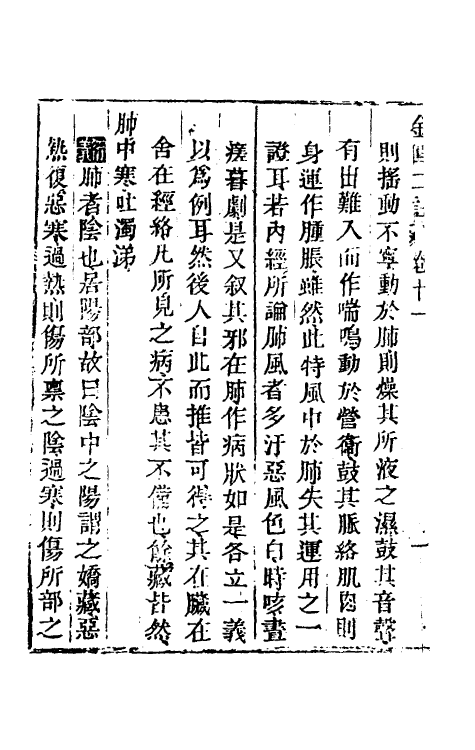 金匱二註 卷十一
則搖動不寧動於肺則燥其所液之濕鼓其音聲
有出難入而作喘鳴動於營衛鼓其脈絡肌肉則
身運作腫脹雖然此特風中於肺失其運用之一
證耳若內經所論肺風者多汗惡風色白時咳晝
瘥暮劇是又叙其邪在肺作病狀如是各立一義
以爲例耳然後人自此而推皆可得之其在臟在
舍在經絡凡所見之病不患其不備也餘藏皆然
肺中寒吐濁涕
肺者陰也居陽部故曰陰中之陽謂之嬌藏惡
熱復惡寒過熱則傷所稟之陰過寒則傷所部之